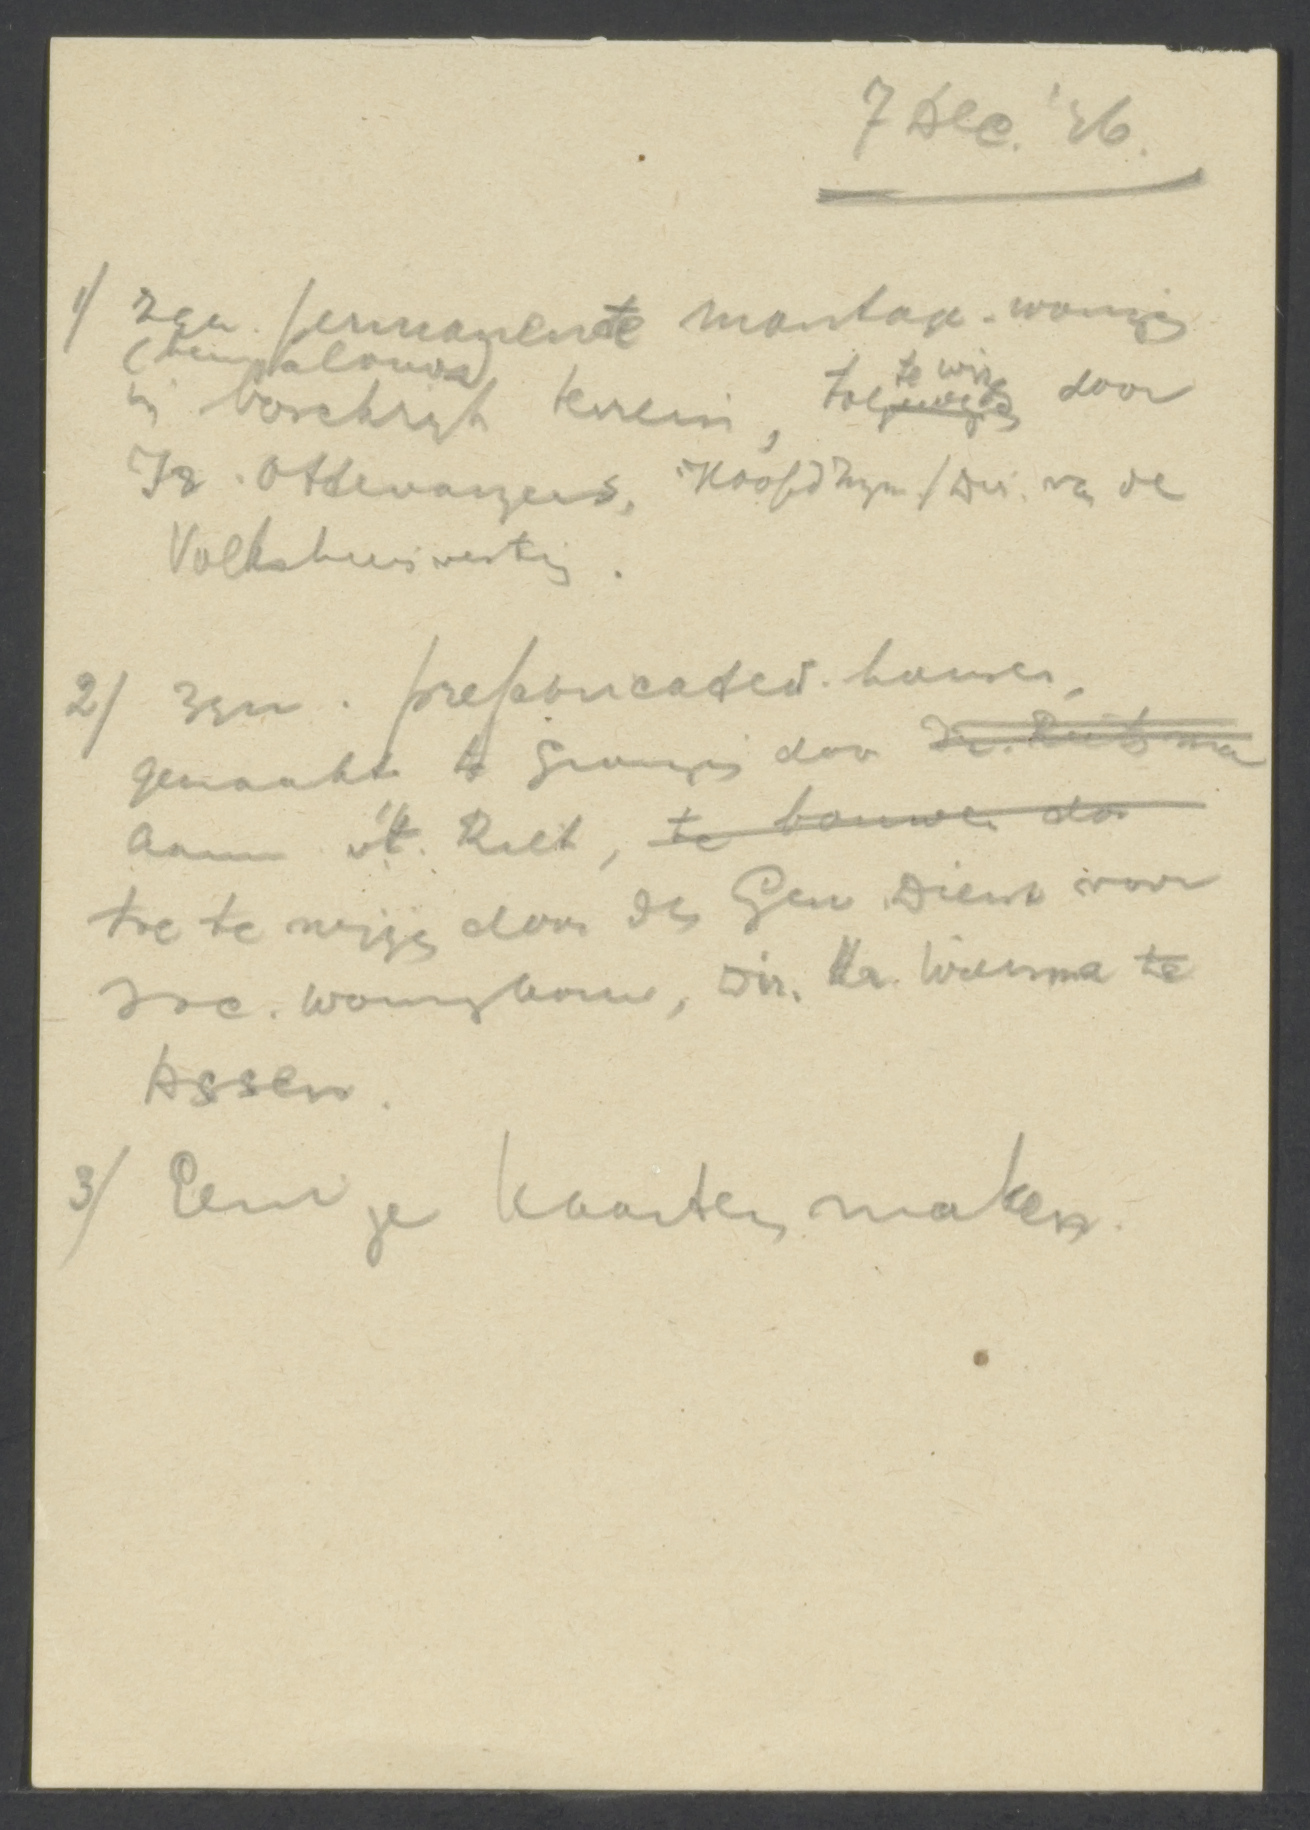 7 Dec. '46.
1/ zgn. permanente montage-woningen
(bungalows)
in boschrijk terrein, toe te wijzen door
Ir. Ottevangers, Hoofding./Dir. va de
Volkshuisvesting.
2/ zgn. prefabricated. houses,
gemaakt te Groningen door
aann v/t. Riet, te bouwen door
toe te wijzen door den Gew. Dienst voor
soc. woningbouw, Dir. Hr. Wiersma te
Assen.
3/ Eenige kaarten maken.